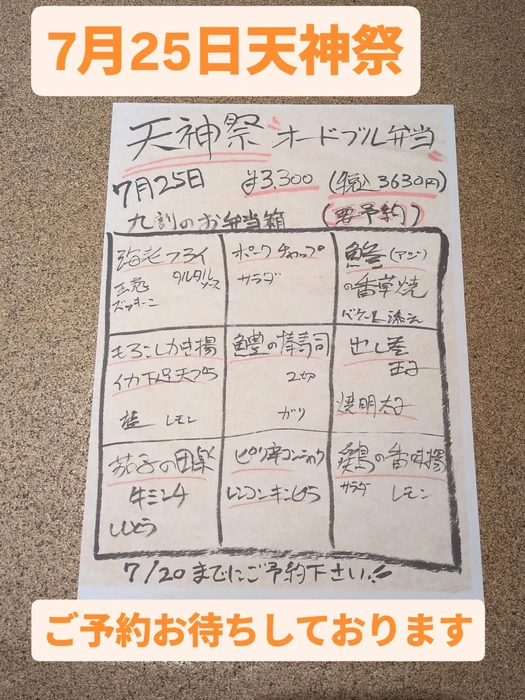 7月25日天神祭
天神祭 オードブル弁当
7月25日 ¥3,300 (税込 3630円)
九割のお弁当箱 (要予約)
海老フライ
タルタル
ソース
ズッキーニ
ポークチャップ
サラダ
鯵(アジ)
の香草焼
バゲット添え
もろこしかき揚
イカ下足天ぷら
レモン
鱧の棒寿司
2切
ガリ
出し巻
玉子
焼明太子
茄子の田楽
牛ミンチ
ししとう
ピリ辛コンニャク
レンコンキンピラ
鶏の香味揚
サラダ レモン
7/20までにご予約下さい!!
ご予約お待ちしております